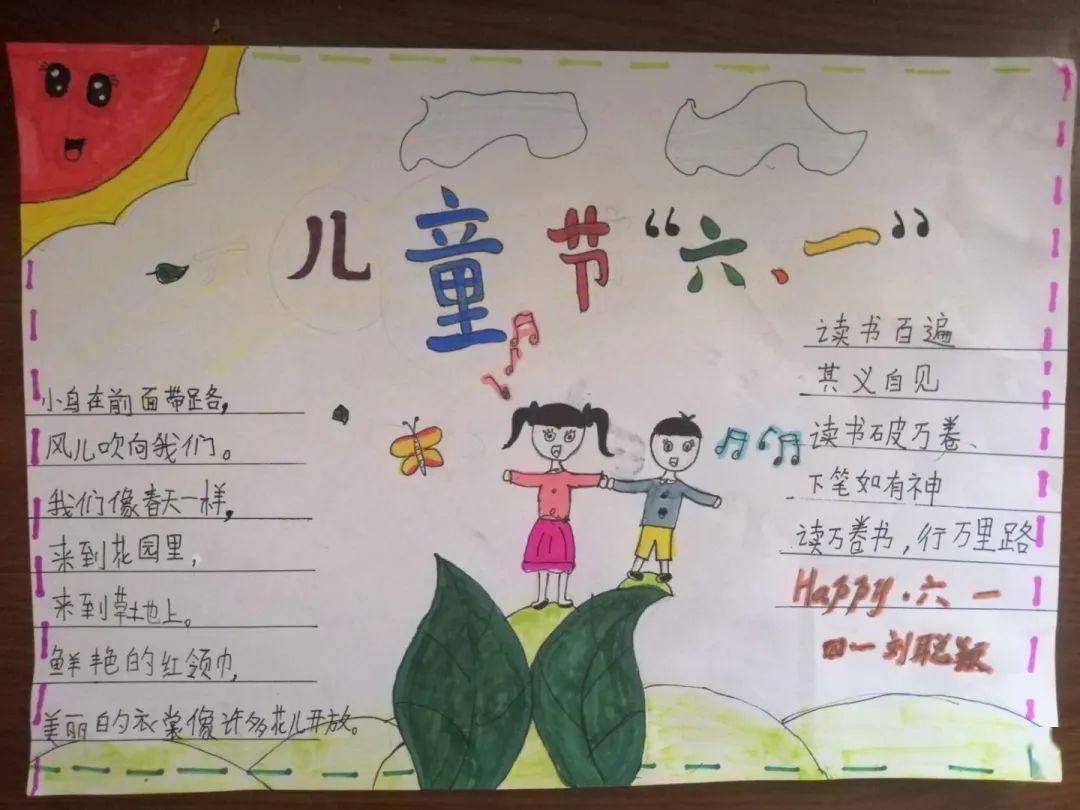 儿童节“六、一”
小鸟在前面带路，
风儿吹向我们。
我们像春天一样，
来到花园里，
来到草地上。
鲜艳的红领巾，
美丽的衣裳像许多花儿开放。
读书百遍
其义自见
读书破万卷、
下笔如有神
读万卷书，行万里路
Happy·六一
四一刘聪颖